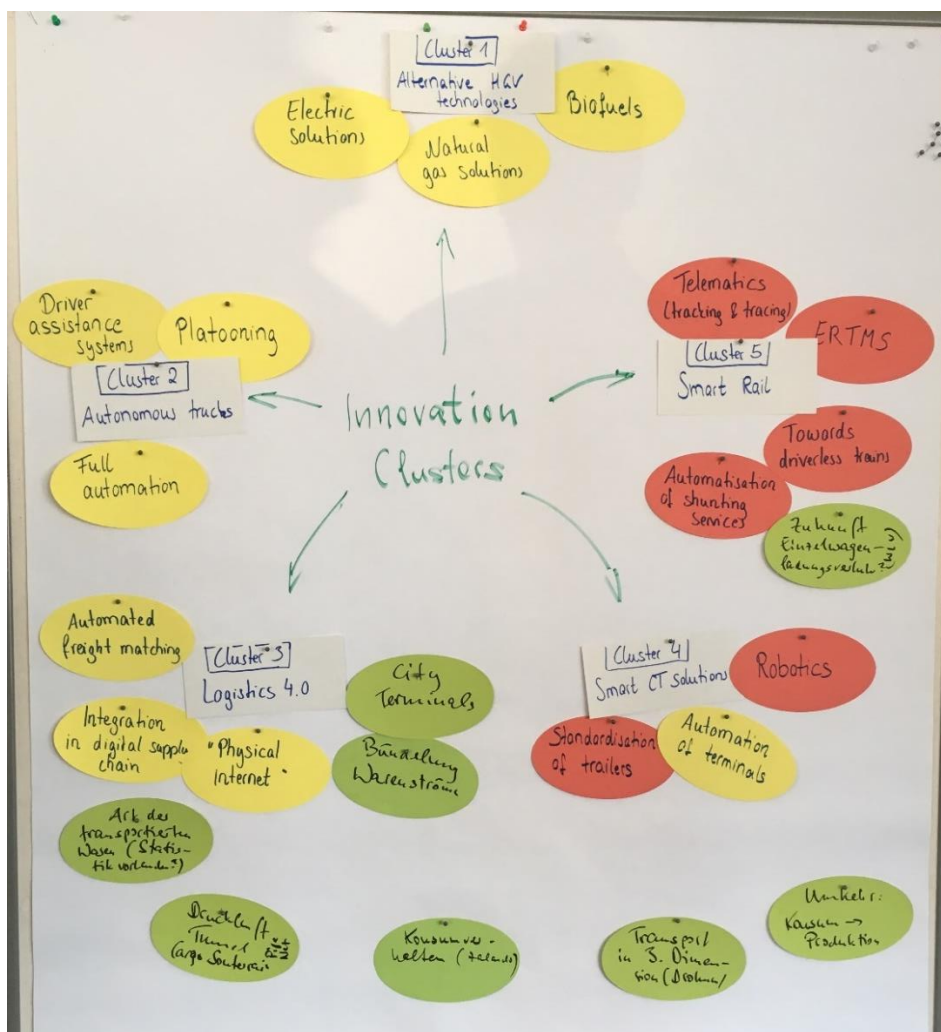 Cluster 1
Alternative HGV
technologies
Electric
solutions
Natural
gas solutions
Biofuels
Driver
assistance
systems
Platooning
Cluster 2
Autonomous trucks
Full
automation
Innovation
Clusters
Telematics
(tracking & tracing)
ERTMS
Cluster 5
Smart Rail
Towards
driverless trains
Automatisation
of shunting
services
Zukunft
Einzelwagen-
ladungsverkehr?
Automated
freight matching
Cluster 3
Logistics 4.0
City
Terminals
Integration
in digital supply
chain
"Physical
Internet"
Bündelung
Warenströme
Art der
transportierten
Waren (Statis-
tik vorhanden?)
Cluster 4
Smart CT solutions
Robotics
Standardisation
of trailers
Automation
of terminals
Druckluft
Tunnel
Cargo Souterrain
Konsumver-
halten
Transport
in 3. Dimen-
sion (Drohnen)
Umkehr:
Konsum →
Produktion